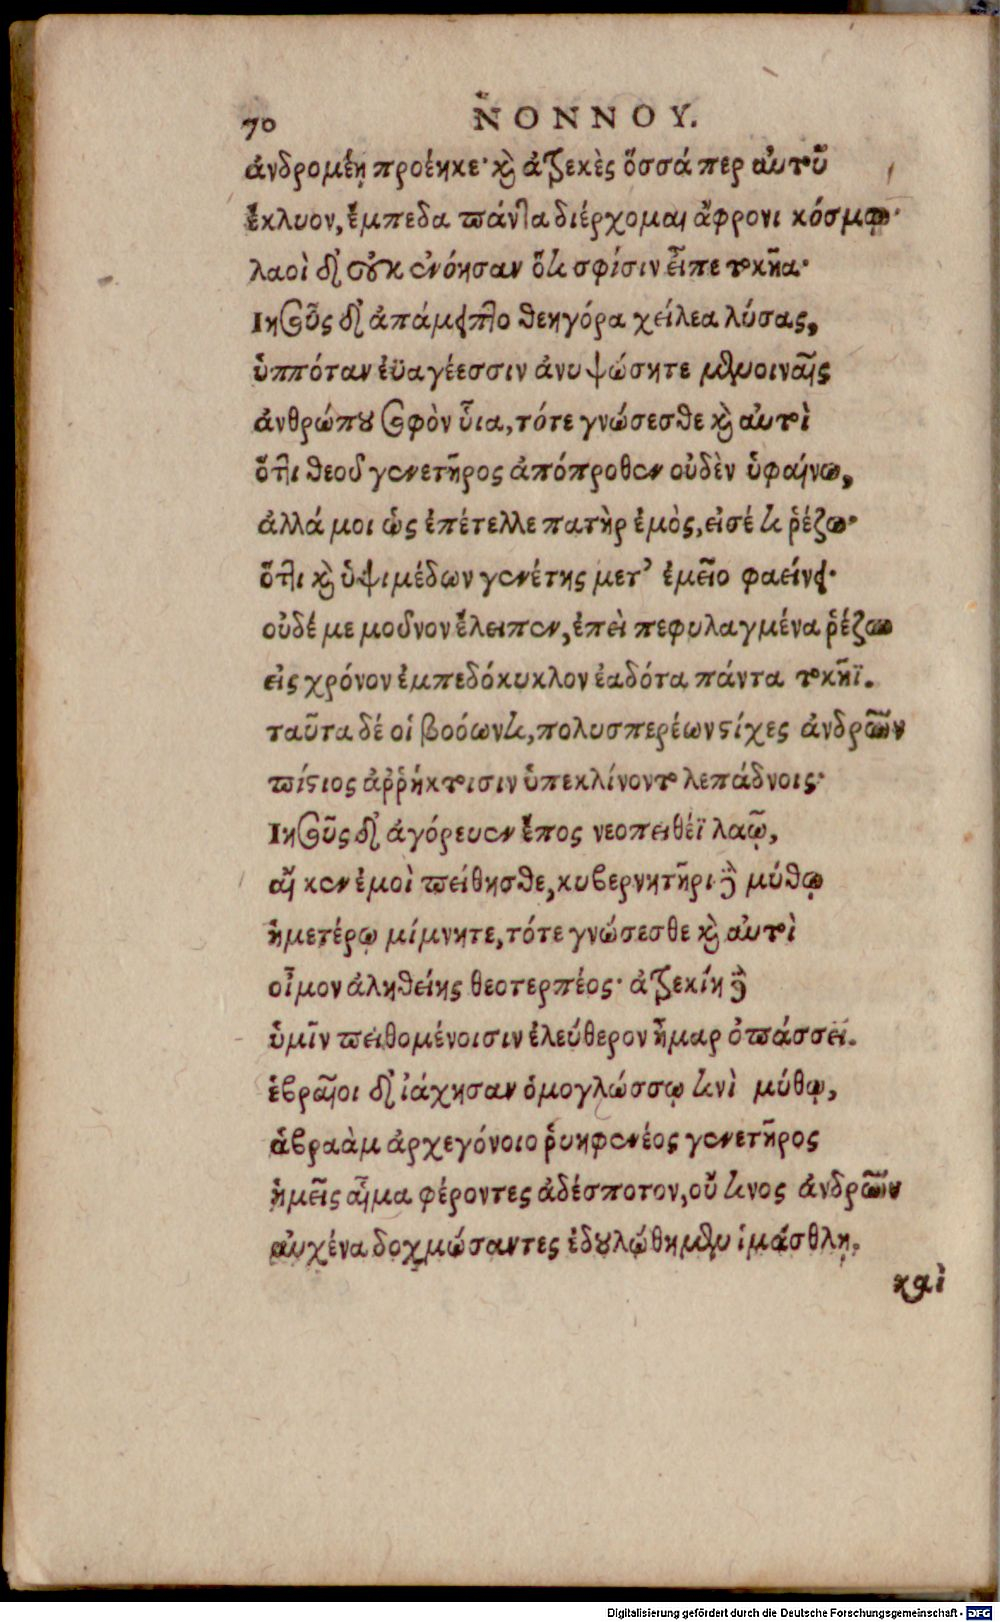 70 ΝΟΝΝΟΥ.
ἀνδρομέῃ προέηκε· καὶ ἀτρεκὲς ὅσσά περ αὐτοῦ
ἔκλυον, ἔμπεδα πάντα διέρχομαι ἄφρονι κόσμῳ·
λαοὶ δ' οὐκ ἐνόησαν ὅτι σφίσιν εἶπε τοκῆα·
Ἰησοῦς δ' ἀπάμειπτο θεηγόρα χείλεα λύσας,
ὑππόταν ἐϋαγέεσσιν ἀνυψώσητε μενοιναῖς
ἀνθρώπου σοφὸν ὗια, τότε γνώσεσθε καὶ αὐτοὶ
ὅτι θεοῦ γενετῆρος ἀπόπροθεν οὐδὲν ὑφαίνω,
ἀλλά μοι ὡς ἐπέτελλε πατὴρ ἐμὸς, εἰσέτι ῥέζω·
ὅτι καὶ ὑψιμέδων γενέτης μετ' ἐμεῖο φαείνει·
οὐδέ με μοῦνον ἔλειπεν, ἐπεὶ πεφυλαγμένα ῥέζω
εἰς χρόνον ἐμπεδόκυκλον ἑαδότα πάντα τοκῆϊ.
ταῦτα δέ οἱ βοόωντι, πολυσπερέων στίχες ἀνδρῶν
πίστιος ἀῤῥήκτοισιν ὑπεκλίνοντο λεπάδνοις·
Ἰησοῦς δ' ἀγόρευεν ἔπος νεοπειθέϊ λαῷ,
αἴ κεν ἐμοὶ πείθησθε, κυβερνητῆρι δὲ μύθῳ
ἡμετέρῳ μίμνητε, τότε γνώσεσθε καὶ αὐτοὶ
οἶμον ἀληθείης θεοτερπέος· ἀτρεκίη δὲ
ὑμῖν πειθομένοισιν ἐλεύθερον ἦμαρ ὀπάσσει.
ἑβραῖοι δ' ἰάχησαν ὁμογλώσσῳ τινὶ μύθῳ,
ἁβραὰμ ἀρχεγόνοιο ῥυηφενέος γενετῆρος
ἡμεῖς αἷμα φέροντες ἀδέσποτον, οὔ τινος ἀνδρῶν
αὐχένα δοχμώσαντες ἐδουλώθημεν ἱμάσθλῃ.
καὶ
Digitalisierung gefördert durch die Deutsche Forschungsgemeinschaft - DFG